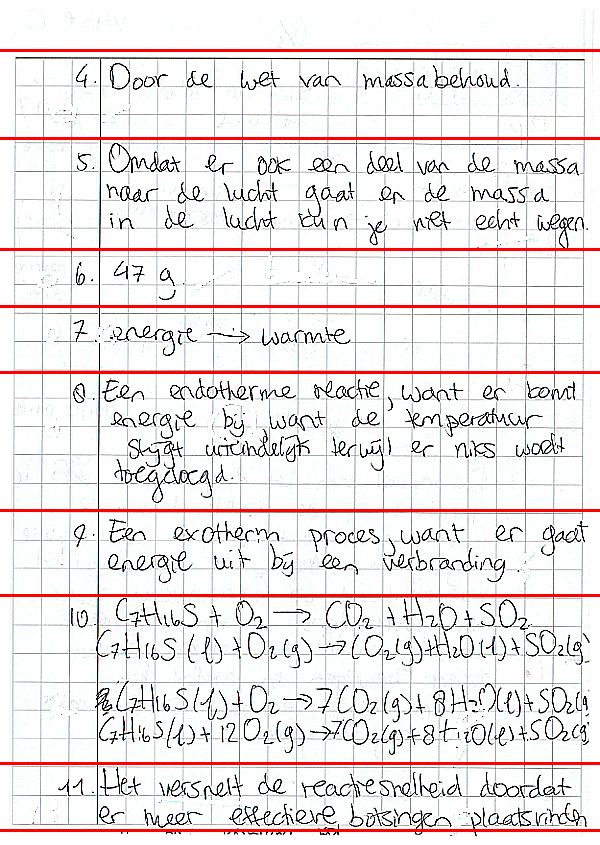 4. Door de wet van massabehoud.
5. Omdat er ook een deel van de massa
naar de lucht gaat en de massa
in de lucht kun je niet echt wegen.
6. 47 g
7. energie → warmte
8. Een endotherme reactie, want er komt
energie bij, want de temperatuur
stijgt uiteindelijk terwijl er niks wodt
toegdoegd.
9. Een exotherm proces, want er gaat
energie uit bij een verbranding.
10. C7H16S + O2 → CO2 + H2O + SO2
C7H16S (l) + O2 (g) → CO2 (g) + H2O (l) + SO2 (g)
C7H16S (l) + O2 → 7 CO2 (g) + 8 H2O (l) + SO2 (g
C7H16S (l) + 12 O2 (g) → 7CO2 (g) + 8 H2O (l) + SO2 (g)
11. Het versnelt de reactiesnelheid doordat
er meer effectieve botsingen plaatsvinden